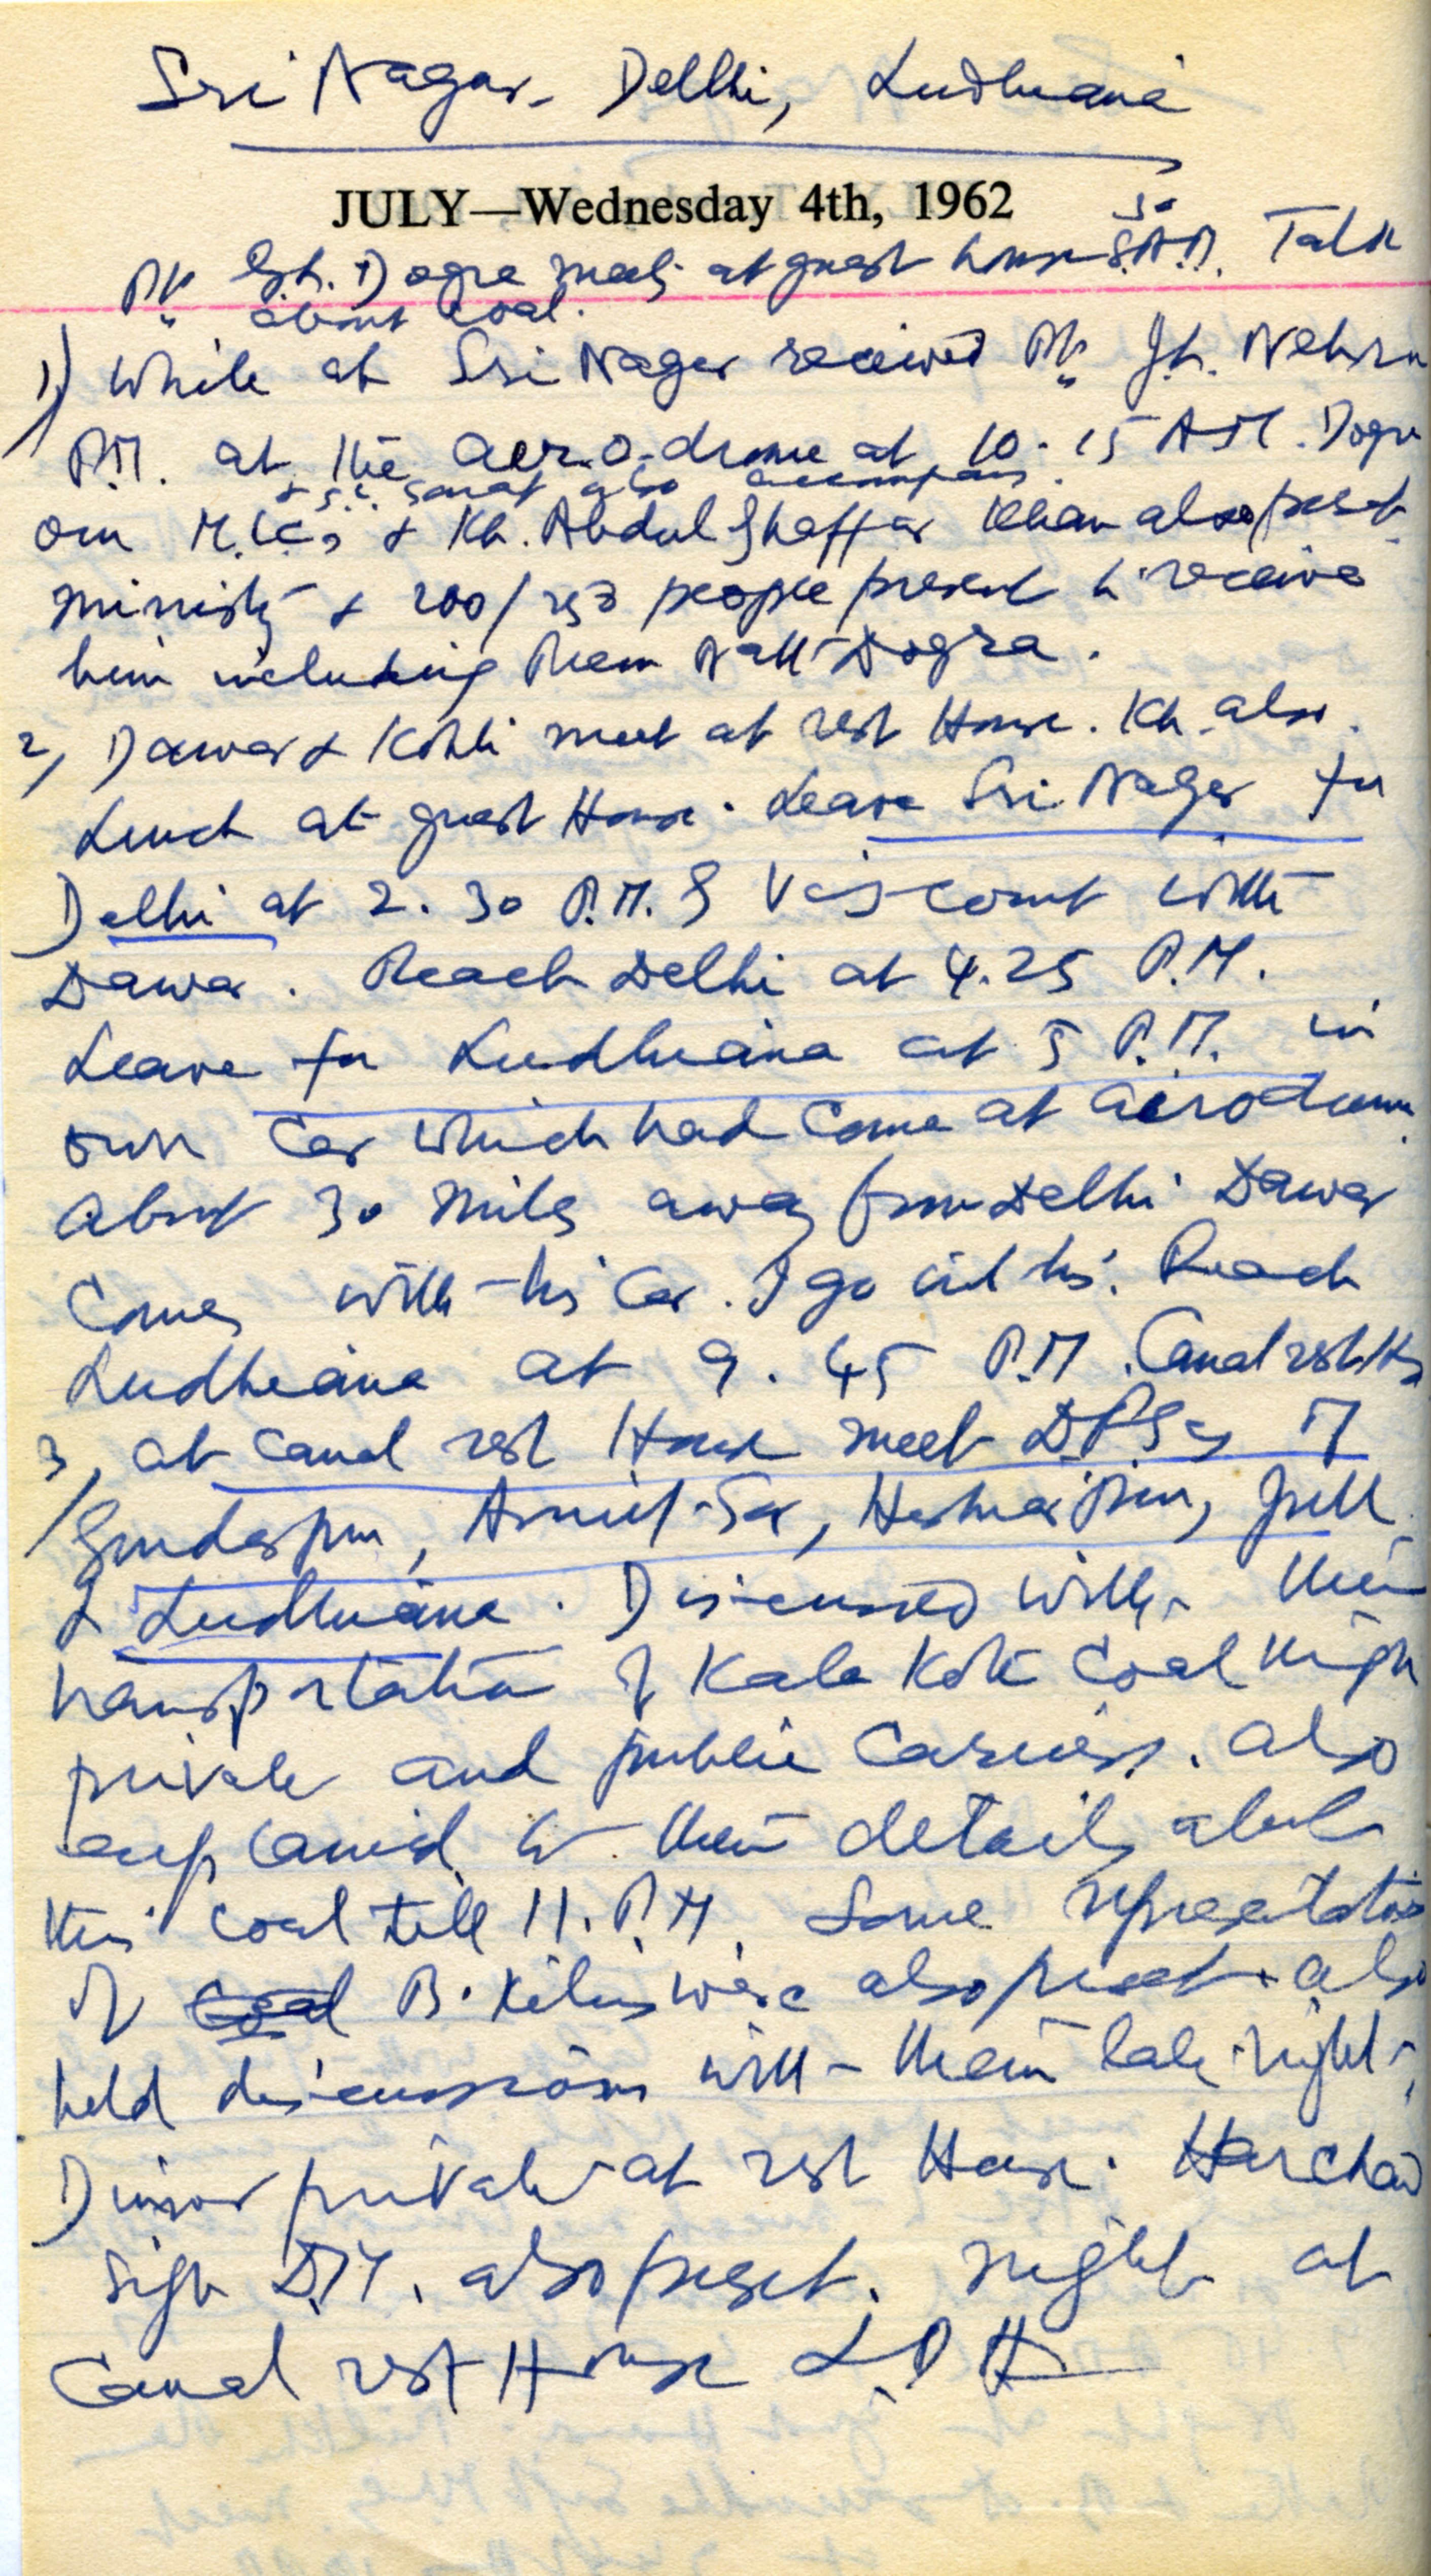 Sri Nagar, Delhi, Ludhiana
JULY—Wednesday 4th, 1962
30
G.L. Dogra meets at guest house 8. A.M. Talk
about coal.
1) While at Sri Nagar received Pt. J.L. Nehru
P.M. at the aerodrome at 10.15 A.M. Dogra
also accompany.
our & Kh. Abdul Ghaffar Khan also preset
Ministers & 200/250 people present to receive
him including Prem Nath Dogra.
2, Dawar & Kohli meet at rest House. Kh. also.
Lunch at guest House. Leave Sri Nagar for
Delhi at 2.30 P.M. Viscount with
Dawar. Reach Delhi at 4.25 P.M.
Leave for Ludhiana at 5 P.M. in
own Car which had come at aerodrome.
About 30 miles away from Delhi Dawar
Comes with his Car. I go in his. Reach
Ludhiana at 9.45 P.M. Canal rest Hs
3, at Canal rest House meet of
Gurdaspur, Amrit-Sar, Hoshiarpur, Jull.
& Ludhiana. Discussed with them
transportation of Kala Kote Coal through
private and public Carriers. Also
explained to them details about
this coal till 11. P.M. Some representatives
of Coal B. Kilns were also preset & also
held discussions with them late night.
Dinner private at rest House. Harchand
Singh D.M. also preset. Night at
Canal rest House LDH